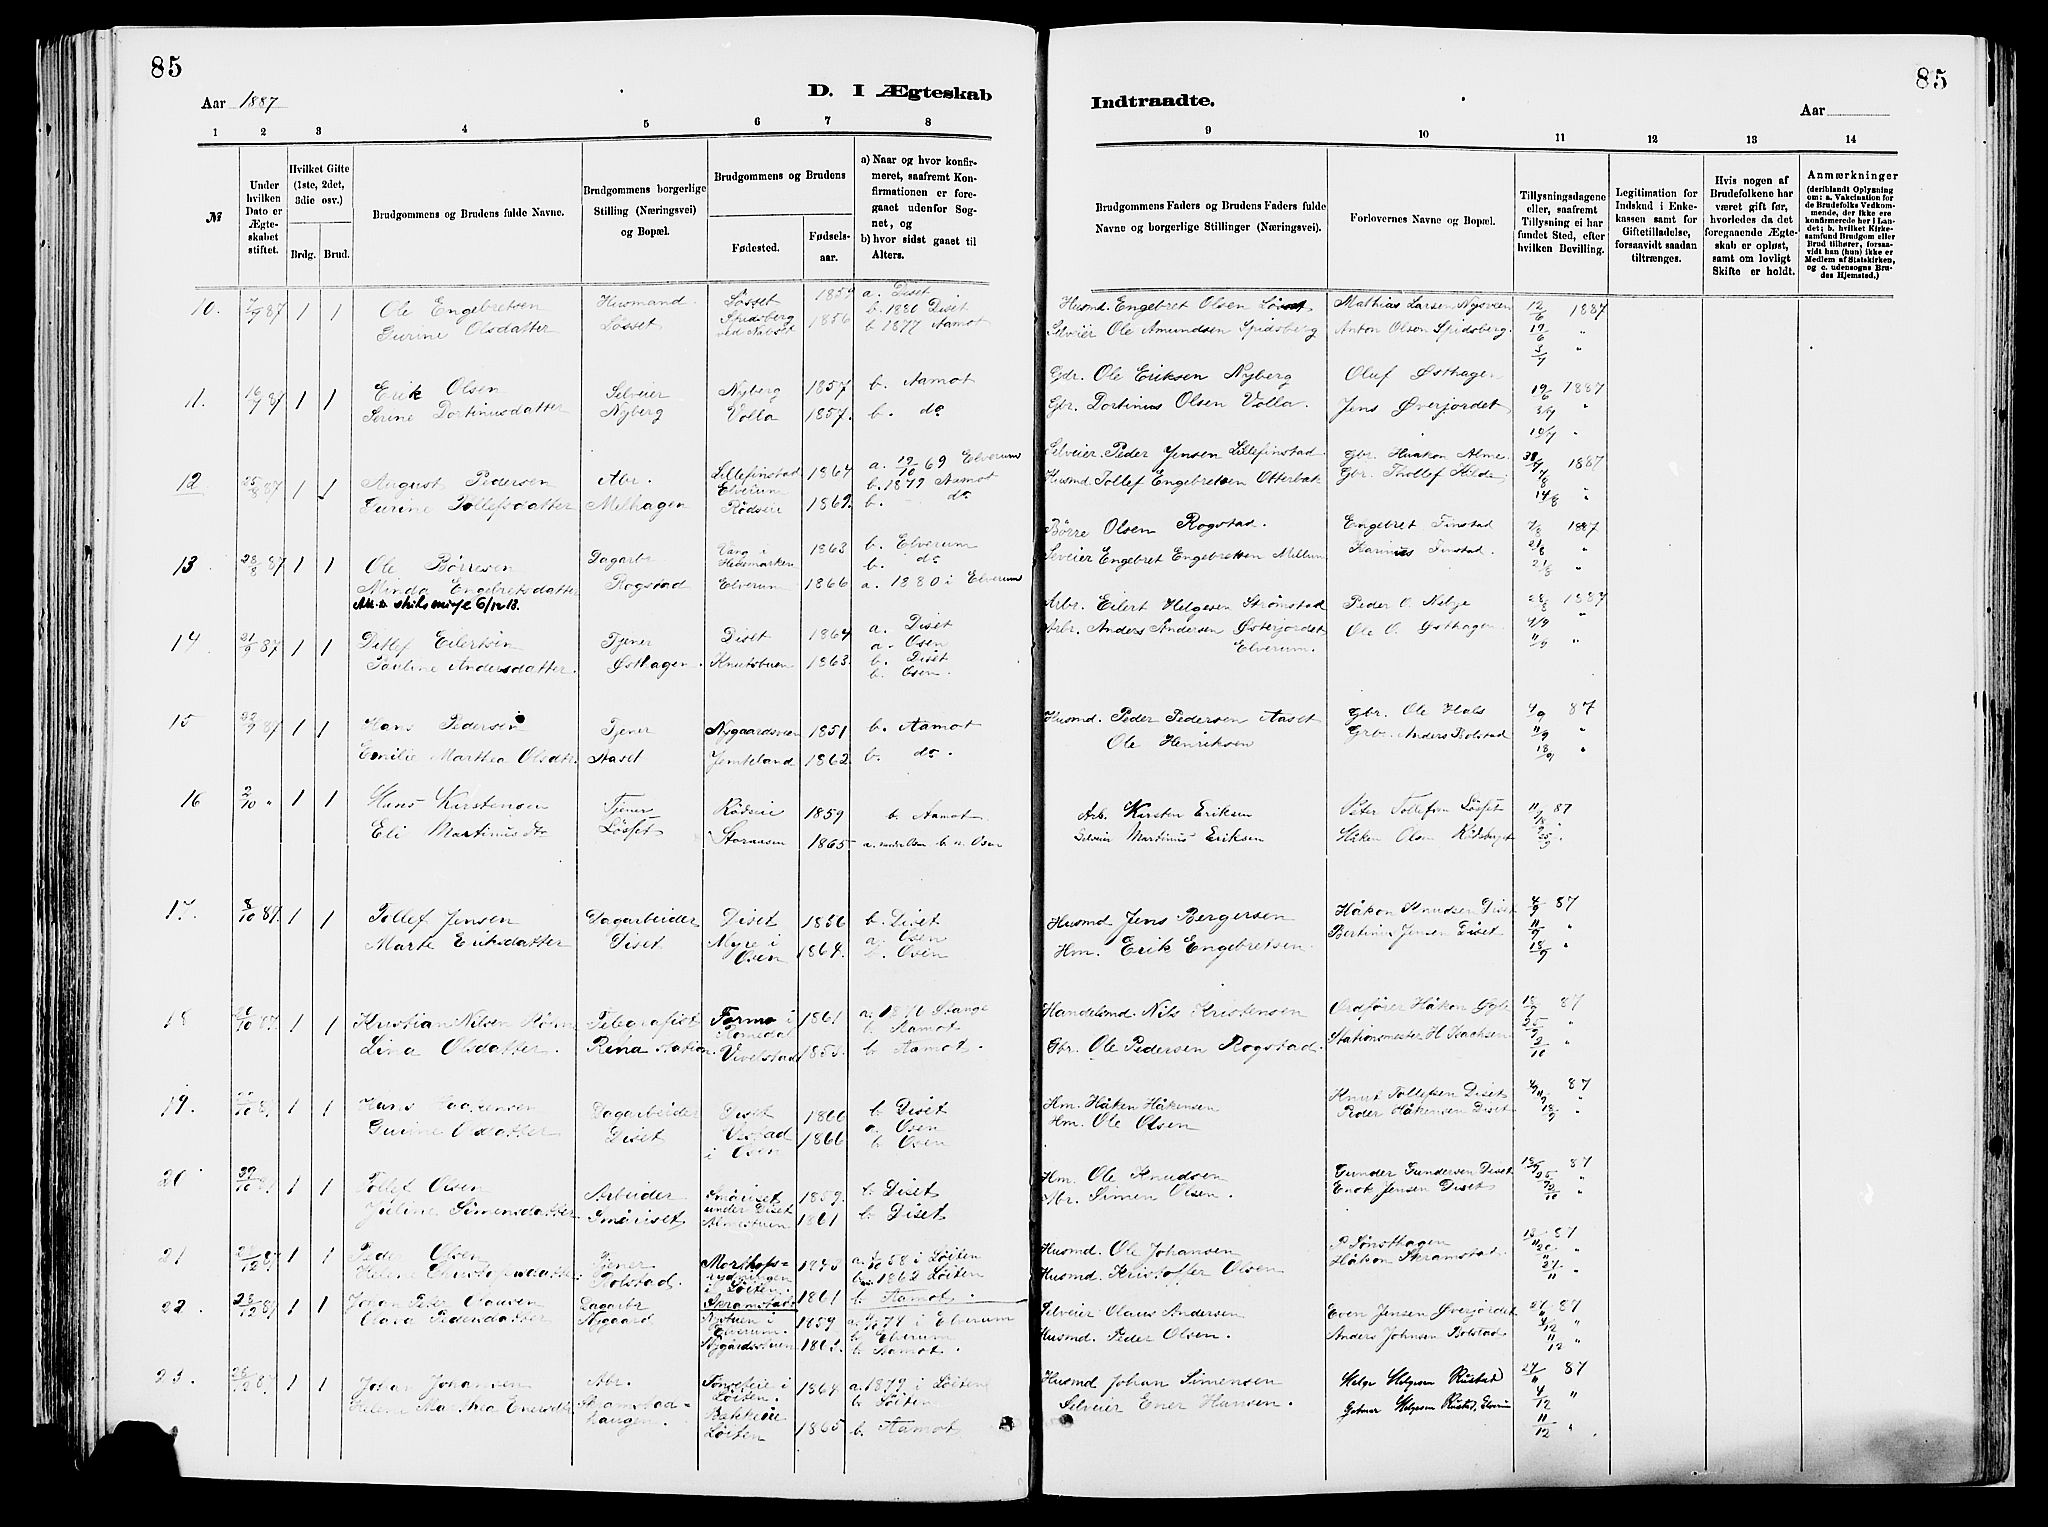 85
85
Aar 1887
D. I Ægteskab
Indtraadte.
Aar
1 2 3 4 5 6 7 8 9 10 11 12 13 14
№
Under hvilken Dato er Ægteskabet stiftet.
Hvilket Gifte (1ste, 2det, 3die osv.)
Brdg. Brud.
Brudgommens og Brudens fulde Navne.
Brudgommens borgerlige Stilling (Næringsvei) og Bopæl.
Brudgommens og Brudens
Fødested.
Fødselsaar.
a) Naar og hvor konfirmeret, saafremt Konfirmationen er foregaaet udenfor Sognet, og
b) hvor sidst gaaet til Alters.
Brudgommens Faders og Brudens Faders fulde Navne og borgerlige Stillinger (Næringsvei).
Forlovernes Navne og Bopæl.
Tillysningsdagene eller, saafremt Tillysning ei har fundet Sted, efter hvilken Bevilling.
Legitimation for Indskud i Enkekassen samt for Giftetilladelse, forsaavidt saadan tiltrænges.
Hvis nogen af Brudefolkene har været gift før, hvorledes da det foregaaende Ægteskab er opløst, samt om lovligt Skifte er holdt.
Anmærkninger
(deriblandt Oplysning om: a. Vakcination for de Brudefolks Vedkommende, der ikke ere konfirmerede her i Landet; b. hvilket Kirkesamfund Brudgom eller Brud tilhører, forsaavidt han (hun) ikke er Medlem af Statskirken, og c. udensogns Brudes Hjemsted.)
10. 87 1 1 Ole Engebretsen Husmand Løsset 1859 a. Diset b. 1880 Diset Husmd. Engebret Olsen Løsset Mathias Larsen Nysveen 12/6 1887
Gurine Olsdatter Løsset Spidsberg 1856 b. 1877 Aamot Selveier Ole Amundsen Spidsberg Anton Olsen Spidsberg. 19/6 "
3/7 "
11. 16/7 87 1 1 Erik Olsen Selveier Nyberg 1857 b. Aamot Gdr. Ole Eriksen Nyberg Oluf Østhagen 19/6 1887
Serine Portinusdatter Nyberg Volla 1857. b. do Gbr. Portinus Olsen Volla. Jens Øverjordet 3/7 "
10/7 "
12 25/8 87 1 1 August Pedersen Abr. Lillefinstad Elverum 1864 a. 19/10 69 Elverum b. 1879 Aamot Selveier Peder Jensen Lillefinstad Gbr. Haakon Alme 1887
Gurine Tollefsdatter Melhagen Rødseie 1862. b. do Husmd. Tollef Engebretsen Otterbæk Gbr. Thollef Hilde 7/8
14/8 "
13 28/8 87 1 1 Ole Børresen Dagarbr Vang i Hedemarken 1863 b. Elverum b. do Børre Olsen Rogstad. Engebret Finstad 7/8 1887
Minda Engebretsdatter Rogstad Elverum 1866 a. 1880 i Elverum Selveier Engebret Engebretsen Millum Karinus Finstad. 21/8 "
21/8 "
14 21/9 87 1 1 Detlef Eilertsen Tjener Diset 1864 a. Diset a. Osen Arbr. Eilert Helgesen Strømstad Peder O. Nebye 28/8 1887
Pauline Andersdatter. Østhagen. Knutsbuen 1863. b. Diset b. Osen. Arbr. Anders Andersen Østerjordet Elverum. Ole O. Østhagen 4/9 "
11/9 "
15 87 1 1 Hans Pedersen Tjener Nygaardsveen 1851 b. Aamot Husmd. Peder Pedersen Aaset Gbr. Ole Hals 4/9 87
Emilie Marthea Olsdtr. Aaset Jemteland 1862. b. do. Ole Henriksen Gbr. Anders Bolstad 11/9 "
18/9 "
16 2/10 " 1 1 Hans Kirstensen Tjener Rødseie 1859 b. Aamot. Arb. Kirsten Eriksen Peter Tollefsen Løsset 11/9 87
Eli Martinusdtr Løsset Storaasen 1865 b. a. Osen Selveier Martinus Eriksen Håken Olsen 25/9.
17. 8/10 87. 1 1 Tollef Jensen Dagarbeider Diset 1856 b. Diset Husmd Jens Bergersen Håkon Knudsen Diset 4/9 87
Marte Eriksdatter Diset Myre i Osen 1864. a. Osen b. Osen Hm. Erik Engebretsen. Bertinus Jensen Diset 11/9 "
18/9 "
18 87 1 1 Kristian Nilsen Telegrafist Formo i Romedal 1861 a. 1876 Stange b. Aamot Handelsmd. Nils Kristensen Ordfører Håkon 18/9 87
Lina Olsdatter. Rena station. Vivelstad 1855. b. Aamot. Gbr. Ole Pedersen Rogstad. Stationsmester H. Isachsen 25/9 "
2/10 "
19. 87 1 1 Hans Dagarbeider Diset 1866 b. Diset Hm. Håken Håkensen Knut Tollefsen Diset 4/9 87
Gurine Olsdatter Diset i Osen 1866 a. Osen b. Osen Hm. Ole Olsen Peder Håkensen Diset 18/9 "
20 30/10 87 1 1 Tollef Olsen Arbeider Småriset under Diset 1859. b. Diset Hm. Ole Knudsen Gunder Gundersen Diset 18/9 87
Juline Simensdatter Småriset Almestuen 1861 b. Diset Abr. Simen Olsen. Enok Jensen Diset 2/10 "
21 87 1 1 Peder Olsen Tjener i Løiten. a. 58 i Løiten b. 1862 Løiten Husmd. Ole Johansen P. Sønsthagen 87
Helene Christophersdatter Bolstad. Skramstad 1861 b. Aamot. Husmd. Kristoffer Olsen Håkon Skramstad. 27/11 "
22. 87 1 1 Johan Peter Clausen Dagarbr i Elverum. 1859 i Elverum b. Elverum Selveier Claus Andersen Even Jensen Øverjordet 27/11 87
Clara Pedersdatter Nygaard Nygårdsstuen 1863. b. Aamot. Husmd. Peder Olsen. Anders Johnsen Bolstad 4/12 "
11/12
23. 87 1 1 Johan Johansen Abr. i Løiten. 1864 a. 1879. i Løiten b. Løiten Husmd Johan Simensen Helge Helgesen Rustad 27/11 87
Helene Marthea Skramstadhaugen. Bakkeie Løiten 1865 b. Aamot Selveier Ener Hansen. Helgesen Rustad, 4/12 "
11/12 "